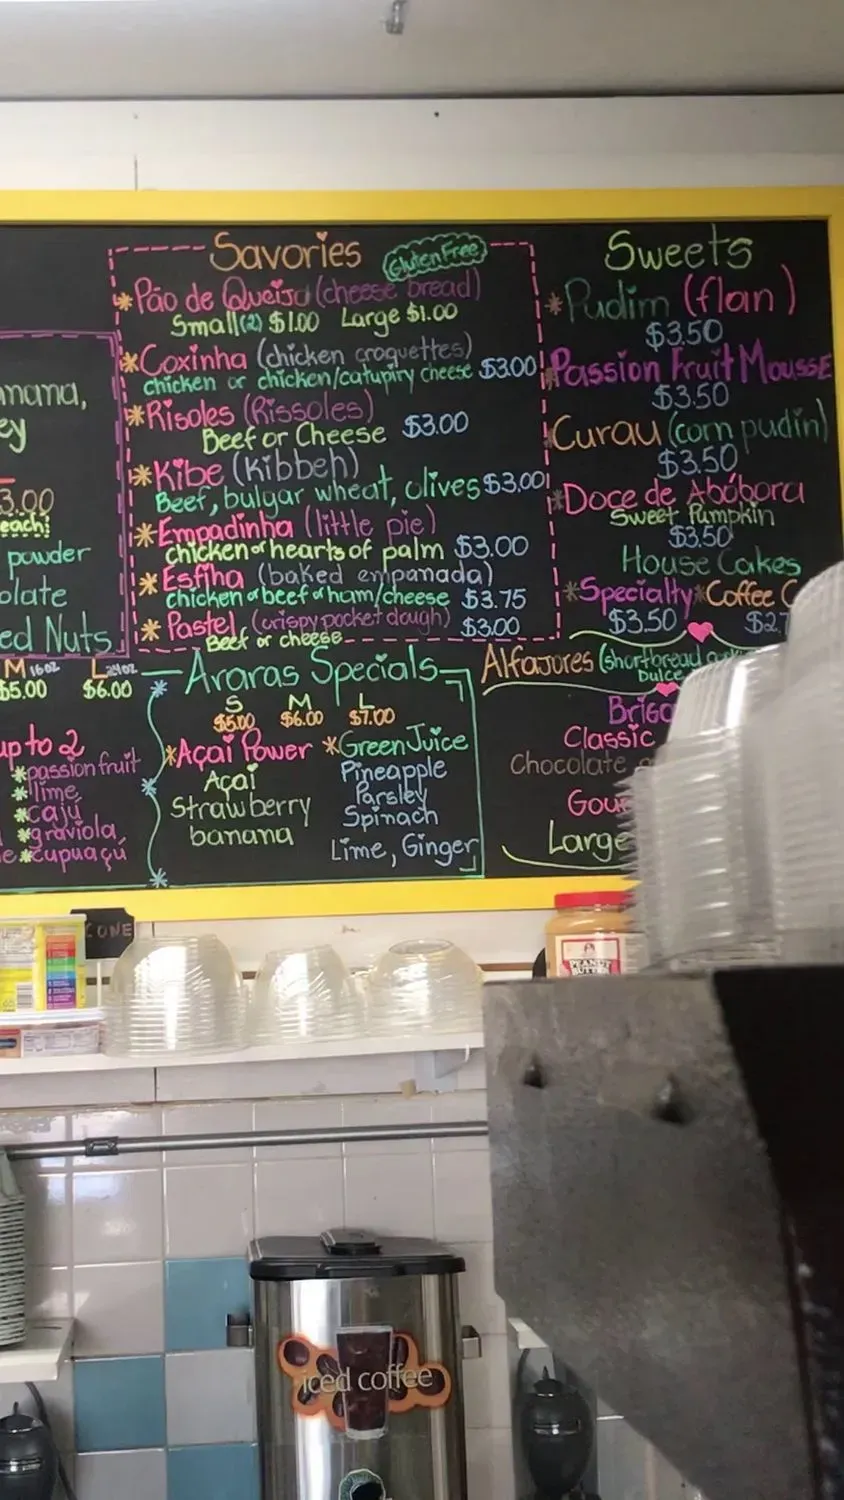 Savories
Gluten Free
*Pão de Queijo (cheese bread)
Small(2) $1.00 Large $1.00
*Coxinha (chicken croquettes)
chicken or chicken/catupiry cheese $3.00
*Risoles (Rissoles)
Beef or Cheese $3.00
*Kibe (Kibbeh)
Beef, bulgar wheat, olives $3.00
*Empadinha (little pie)
chicken or hearts of palm $3.00
*Esfiha (baked empanada)
chicken or beef or ham/cheese $3.75
*Pastel (crispy pocket dough)
Beef or cheese $3.00
Sweets
*Pudim (flan)
$3.50
*Passion Fruit Mousse
$3.50
Curau (corn pudin)
$3.50
*Doce de Abóbora
Sweet Pumpkin
$3.50
House Cakes
*Specialty *Coffee C
$3.50 $2.7
Alfajores (shortbread
Dulce
Briga
Classic
Chocolate
Gou
Large
anana,
ey
3.00
each
powder
olate
ed Nuts
M 16oz L 24oz
$5.00 $6.00
up to 2
*passion fruit
*lime
*cajú
*graviola
*cupuaçú
Araras Specials
S M L
$5.00 $6.00 $7.00
*Açaí Power
Açaí
Strawberry
banana
*Green Juice
Pineapple
Parsley
Spinach
Lime, Ginger
CONE
PEANUT
BUTTER
iced coffee